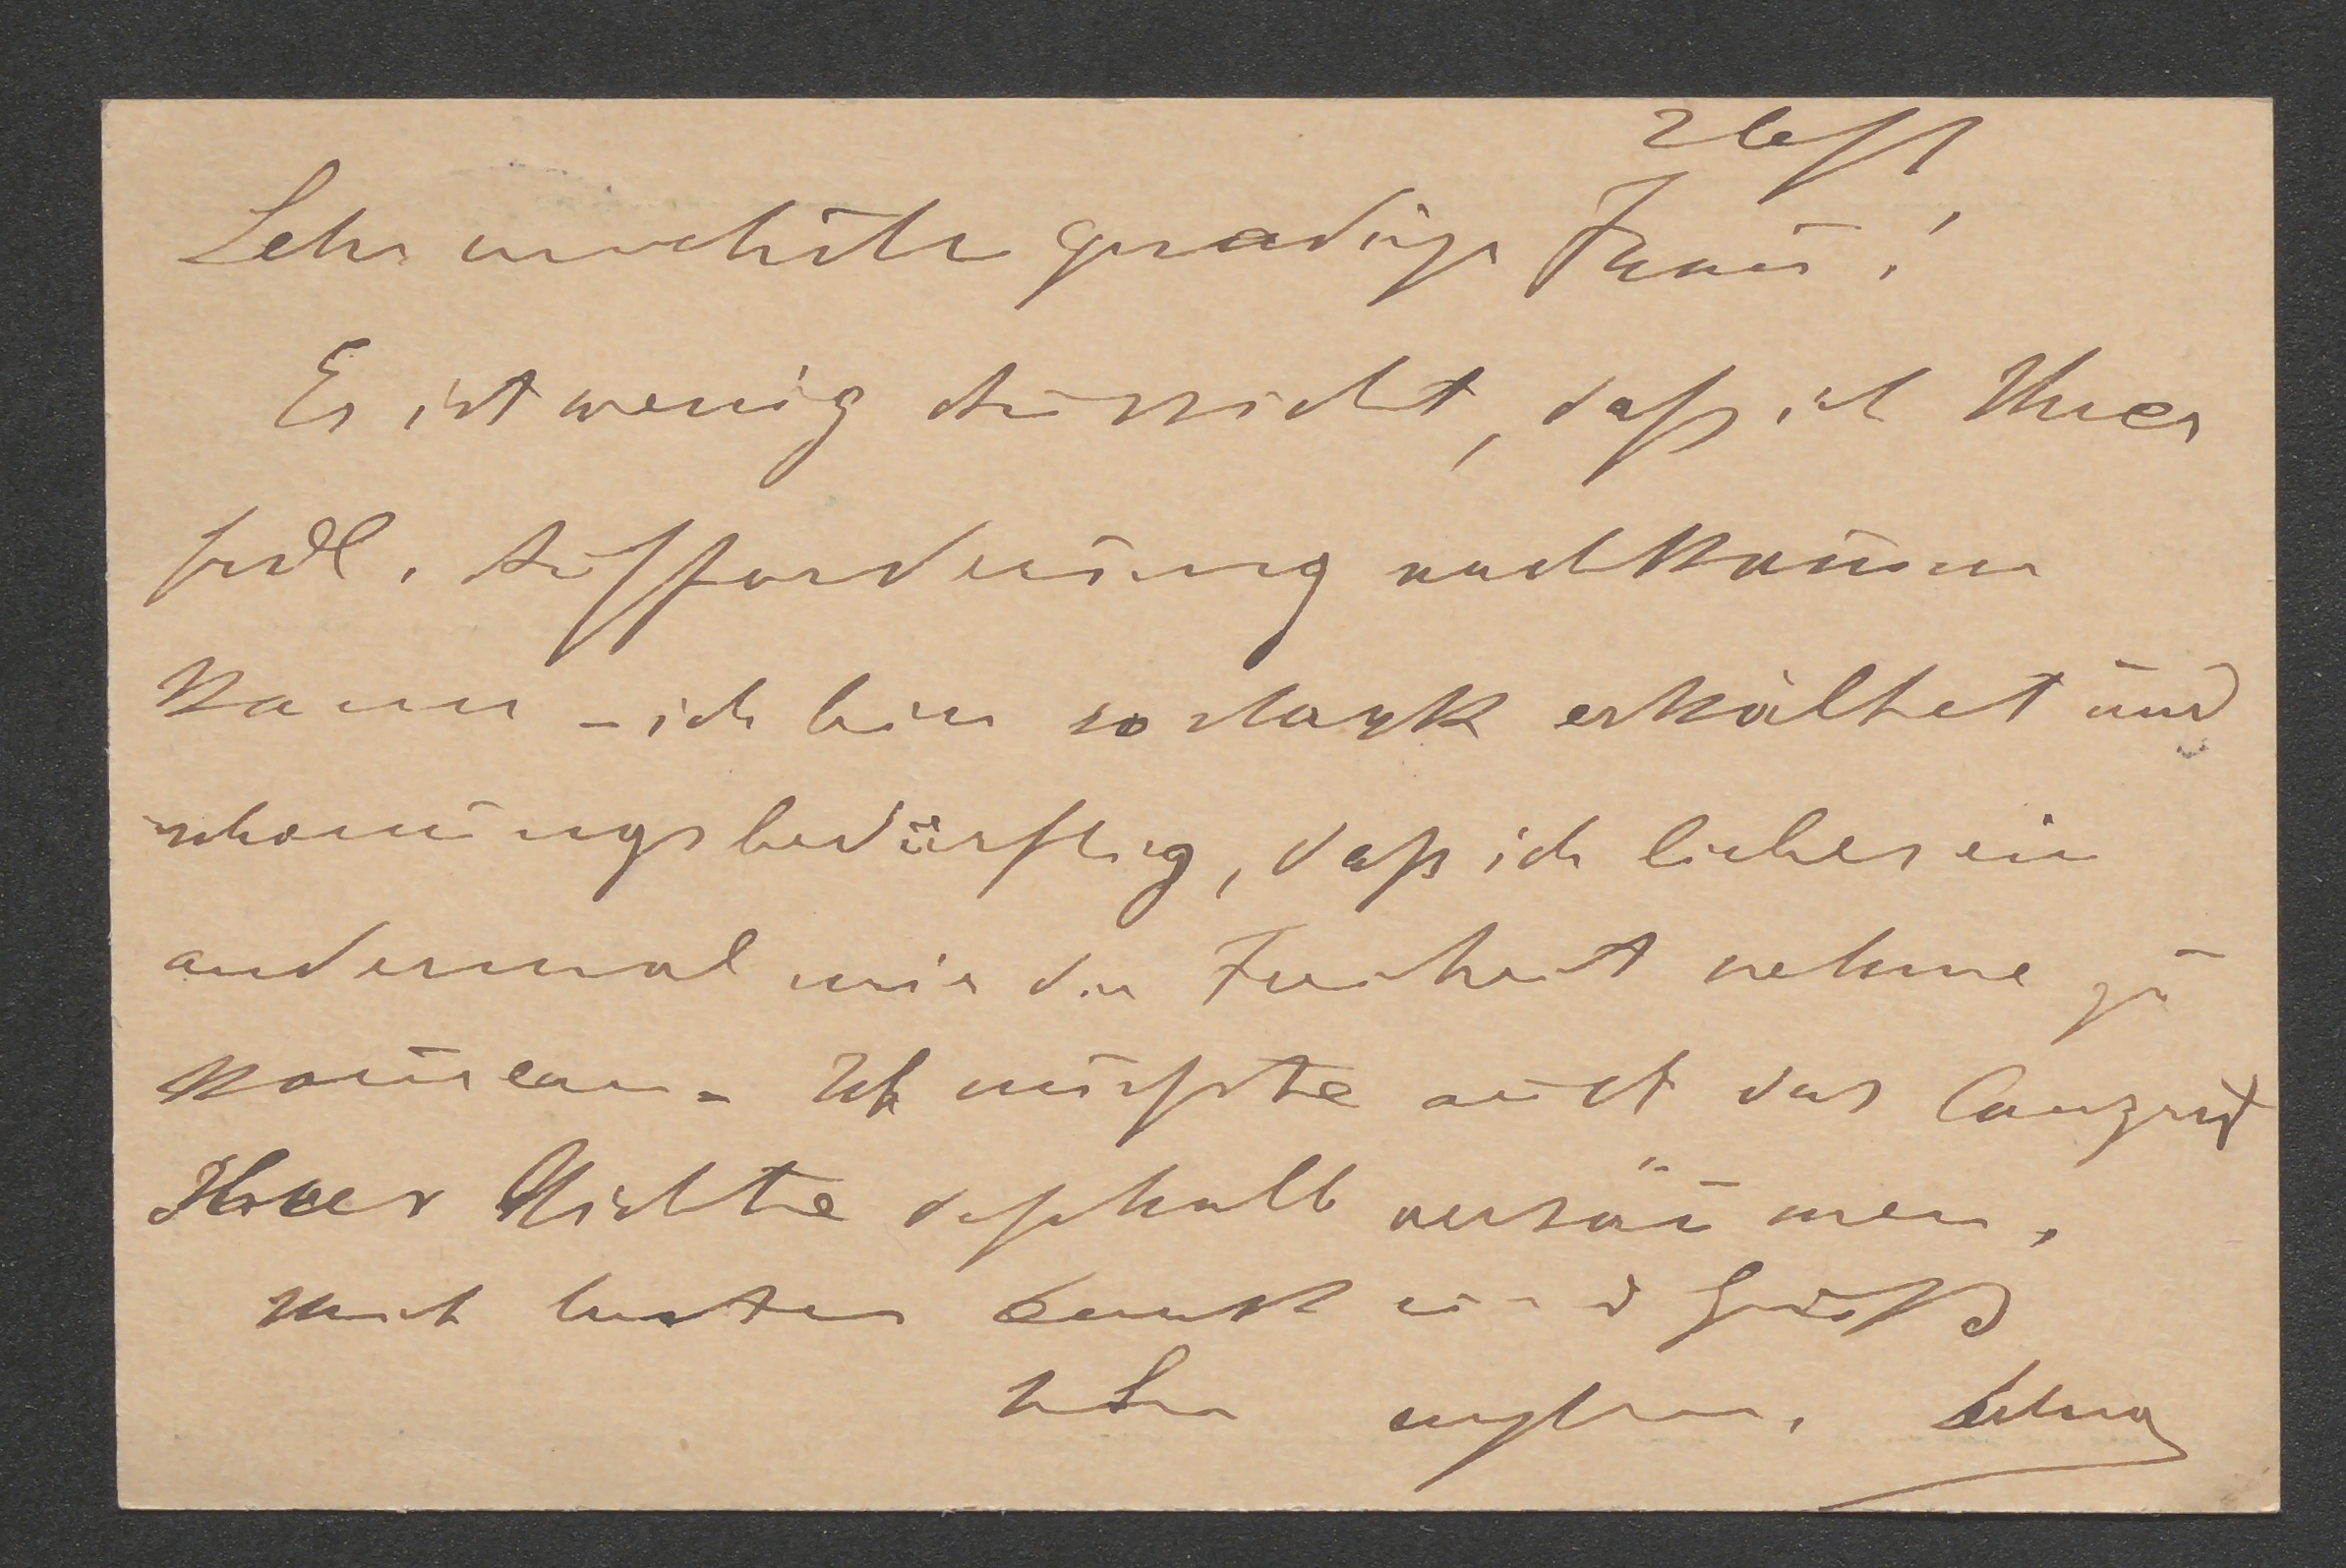 Sehr verehrte gnädige Frau!
Es ist wenig Aussicht, daß ich Ihrer
frdl. Aufforderung nachkommen
kann – ich bin so stark erkältet und
schonungsbedürftig, daß ich lieber ein
andermal mir die Freiheit nehme zu
kommen. Ich müsste auch das Conzert
Ihrer Nichte deßhalb versäumen.
Mit besten Dank und Gruß
Ihr ergebener